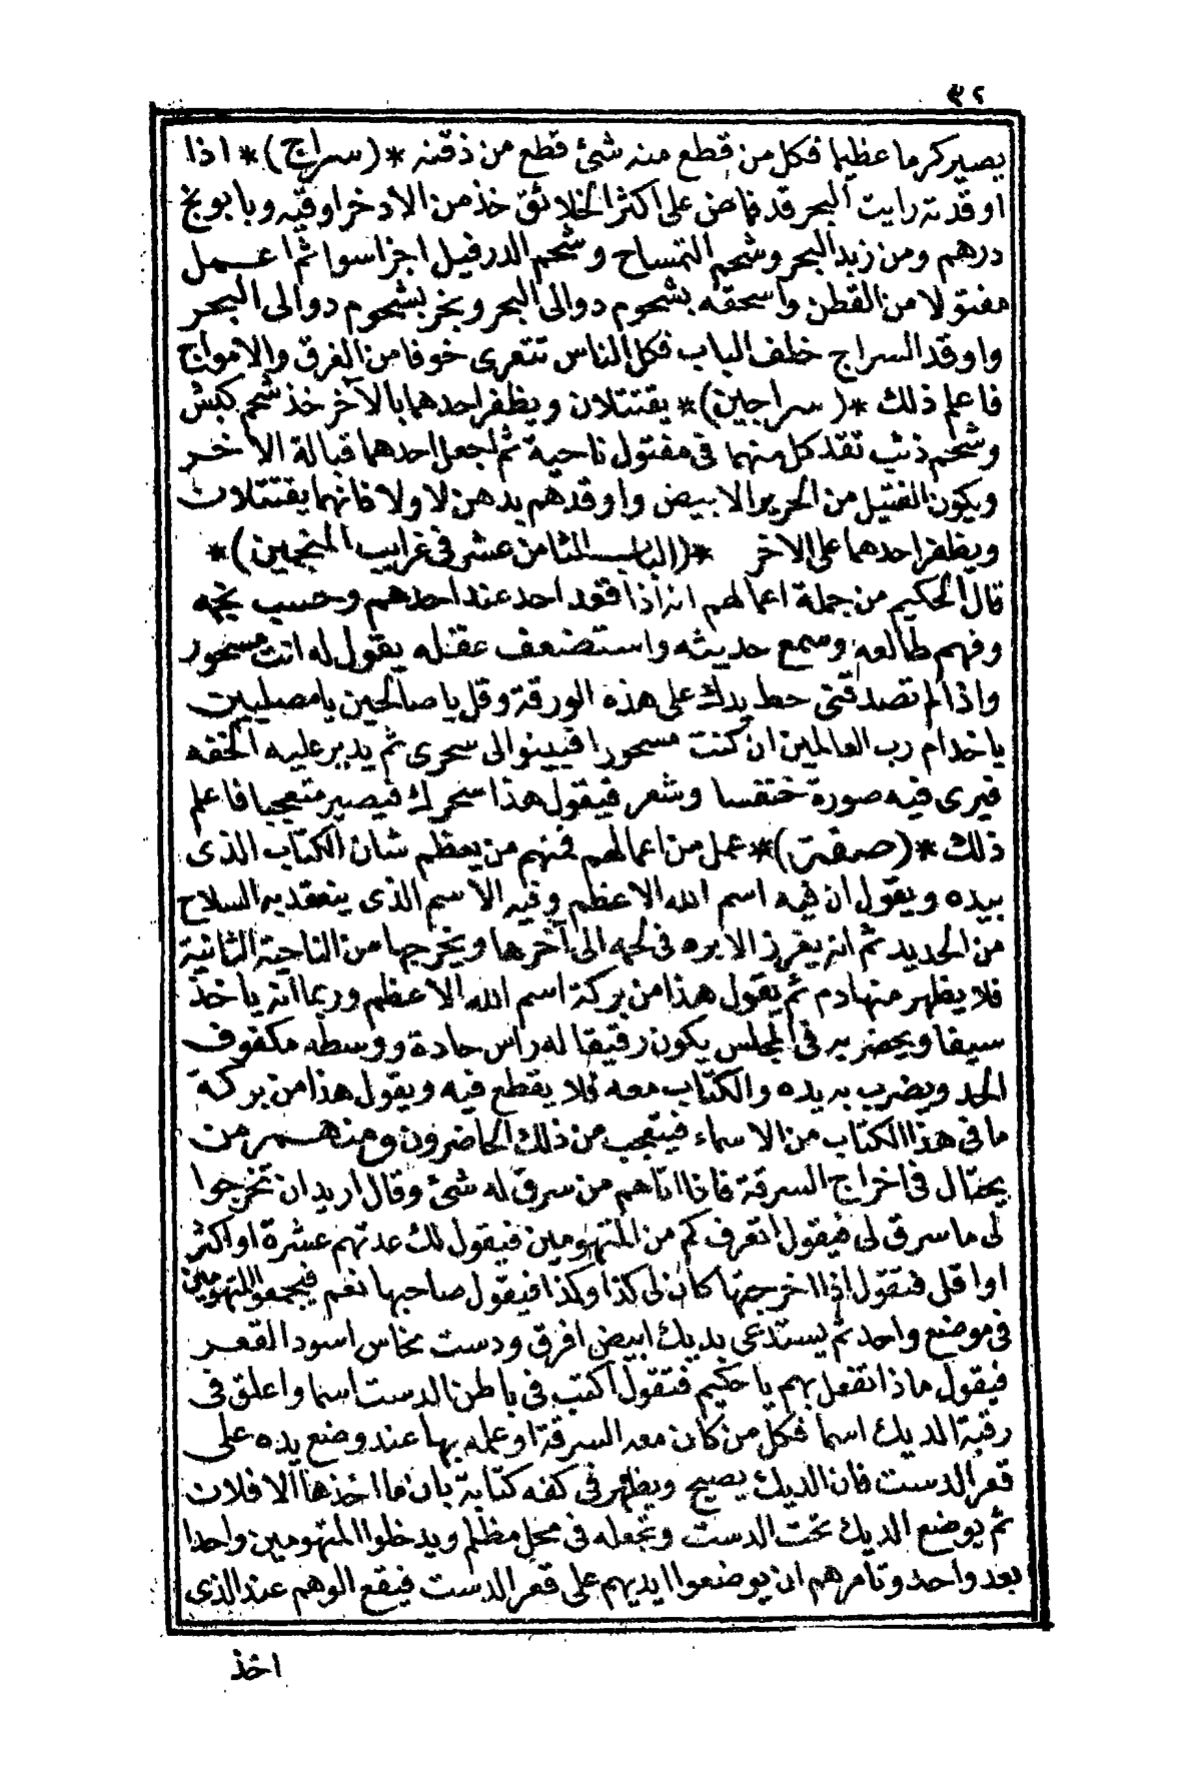 ٤٢
يصير كرما عظيما فكل من قطع منه شئ قطع من ذقنه *(سراج)* اذا
اوقدته رايت البحر قد فاض على اكثر الخلائق خذ من الادخر اوقيه وبابونج
درهم ومن زبد البحر وشحم التمساح وشحم الدرفيل اجزا سوا ثم اعمل
مفتولا من القطن واسحقه بشحوم دوالى البحر وبخر بشحوم دوالى البحر
واوقد السراج خلف الباب فكل الناس تتعرى خوفا من الغرق والامواج
فاعلم ذلك *(سراجين)* يقتتلان ويظفر احدهما بالآخر خذ شحم كبش
وشحم ذئب تقد كل منهما فى مفتول ناحية ثم اجعل احدهما قبالة الاخر
ويكون الفتيل من الحرير الابيض واوقدهم بدهن لاولا فانهما يقتتلان
ويظفر احدهما على الاخر *(الباب الثامن عشر فى غرايب المنجمين)*
قال الحكيم من جملة اعمالهم انه اذا قعد احد عند احدهم وحسب نجمه
وفهم طالعه وسمع حديثه واستضعف عقله يقول له انت مسحور
واذا لم تصدقنى حط يدك على هذه الورقة وقل يا صالحين يا مصليين
يا خدام رب العالمين ان كنت مسحورا فبينوا لى سحرى ثم يدير عليه الحقه
فيرى فيه صورة خنفسا وشعر فيقول هذا سحرك فيصير متعجبا فاعلم
ذلك *(صفة)* عمل من اعمالهم فمنهم من يعظم شان الكتاب الذى
بيده ويقول ان فيه اسم الله الاعظم وفيه الاسم الذى ينعقد به السلاح
من الحديد ثم انه يغرز الابره فى لحمه الى آخرها ويخرجها من الناحية الثانية
فلا يظهر منها دم ثم يقول هذا من بركة اسم الله الاعظم وربما انه ياخذ
سيفا ويحضر به فى المجلس يكون رقيقا له راس حادة ووسطه مكفوف
الحد ويضرب به يده والكتاب معه فلا يقطع فيه ويقول هذا من بركة
ما فى هذا الكتاب من الاسماء فيتعجب من ذلك الحاضرون ومنهم من
يحتال فى اخراج السرقة فاذا اتاهم من سرق له شئ وقال اريد ان تخرجوا
لى ما سرق لى فيقول اتعرف كم من المتهومين فيقول لك عدتهم عشرة او اكثر
او اقل فتقول اذا اخرجتها كان لى كذا وكذا فيقول صاحبها نعم فيجمعوا المتهومين
فى موضع واحد ثم يستدعى بديك ابيض افرق ودست نحاس اسود القعر
فيقول ماذا تفعل بهم يا حكيم فتقول اكتب فى باطن الدست اسما واعلق فى
رقبة الديك اسما فكل من كان معه السرقة او عمله بها عند وضع يده على
قعر الدست فان الديك يصيح ويظهر فى كفه كتابة بان ما اخذها الا فلان
ثم يوضع الديك تحت الدست وتجعله فى محل مظلم ويدخلوا المتهومين واحدا
بعد واحد وتامرهم ان يوضعوا ايديهم على قعر الدست فيقع الوهم عند الذى
اخذ